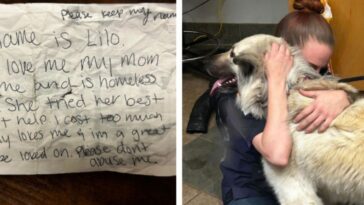 Please keep my
name is Lilo.
love me my Mom
me and is homeless
She tried her best
t help I cost too much
y loves me & i'm a great
be loved on. Please don't
abuse me.